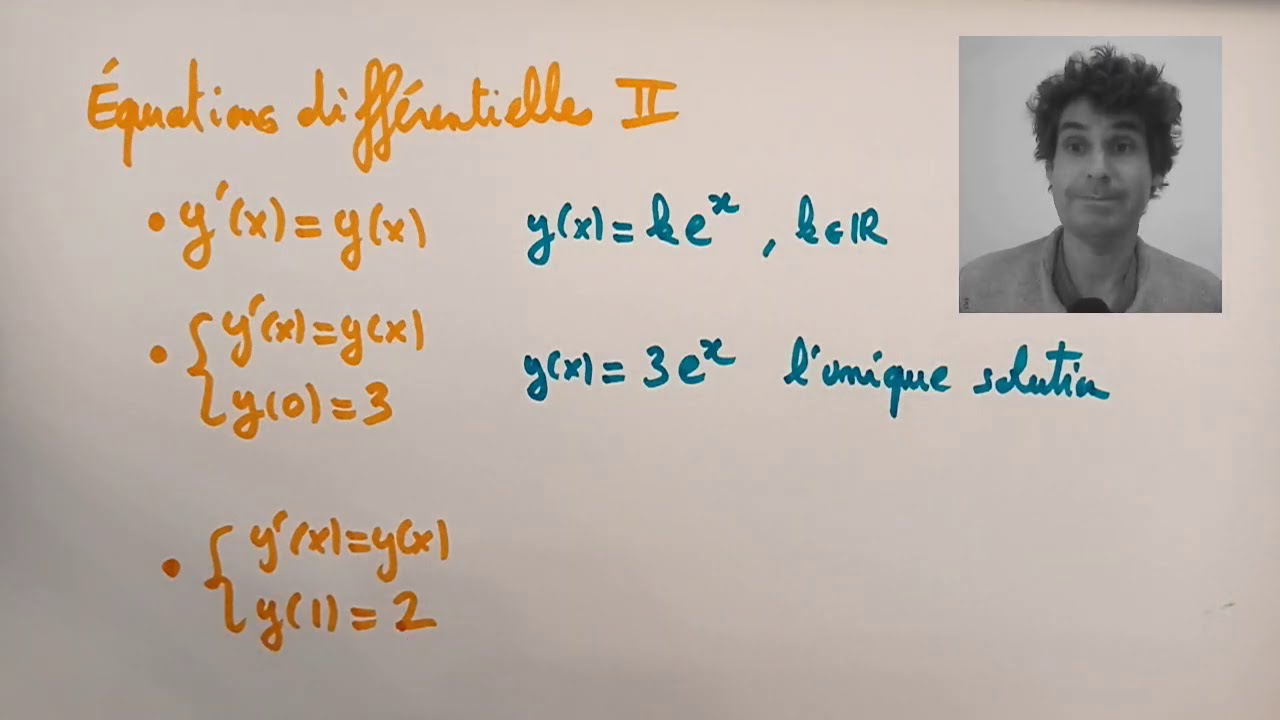 Équations différentielles II
• y'(x) = y(x) y(x) = k eˣ , k ∈ ℝ
• { y'(x) = y(x)
y(0) = 3
y(x) = 3eˣ l'unique solution
• { y'(x) = y(x)
y(1) = 2